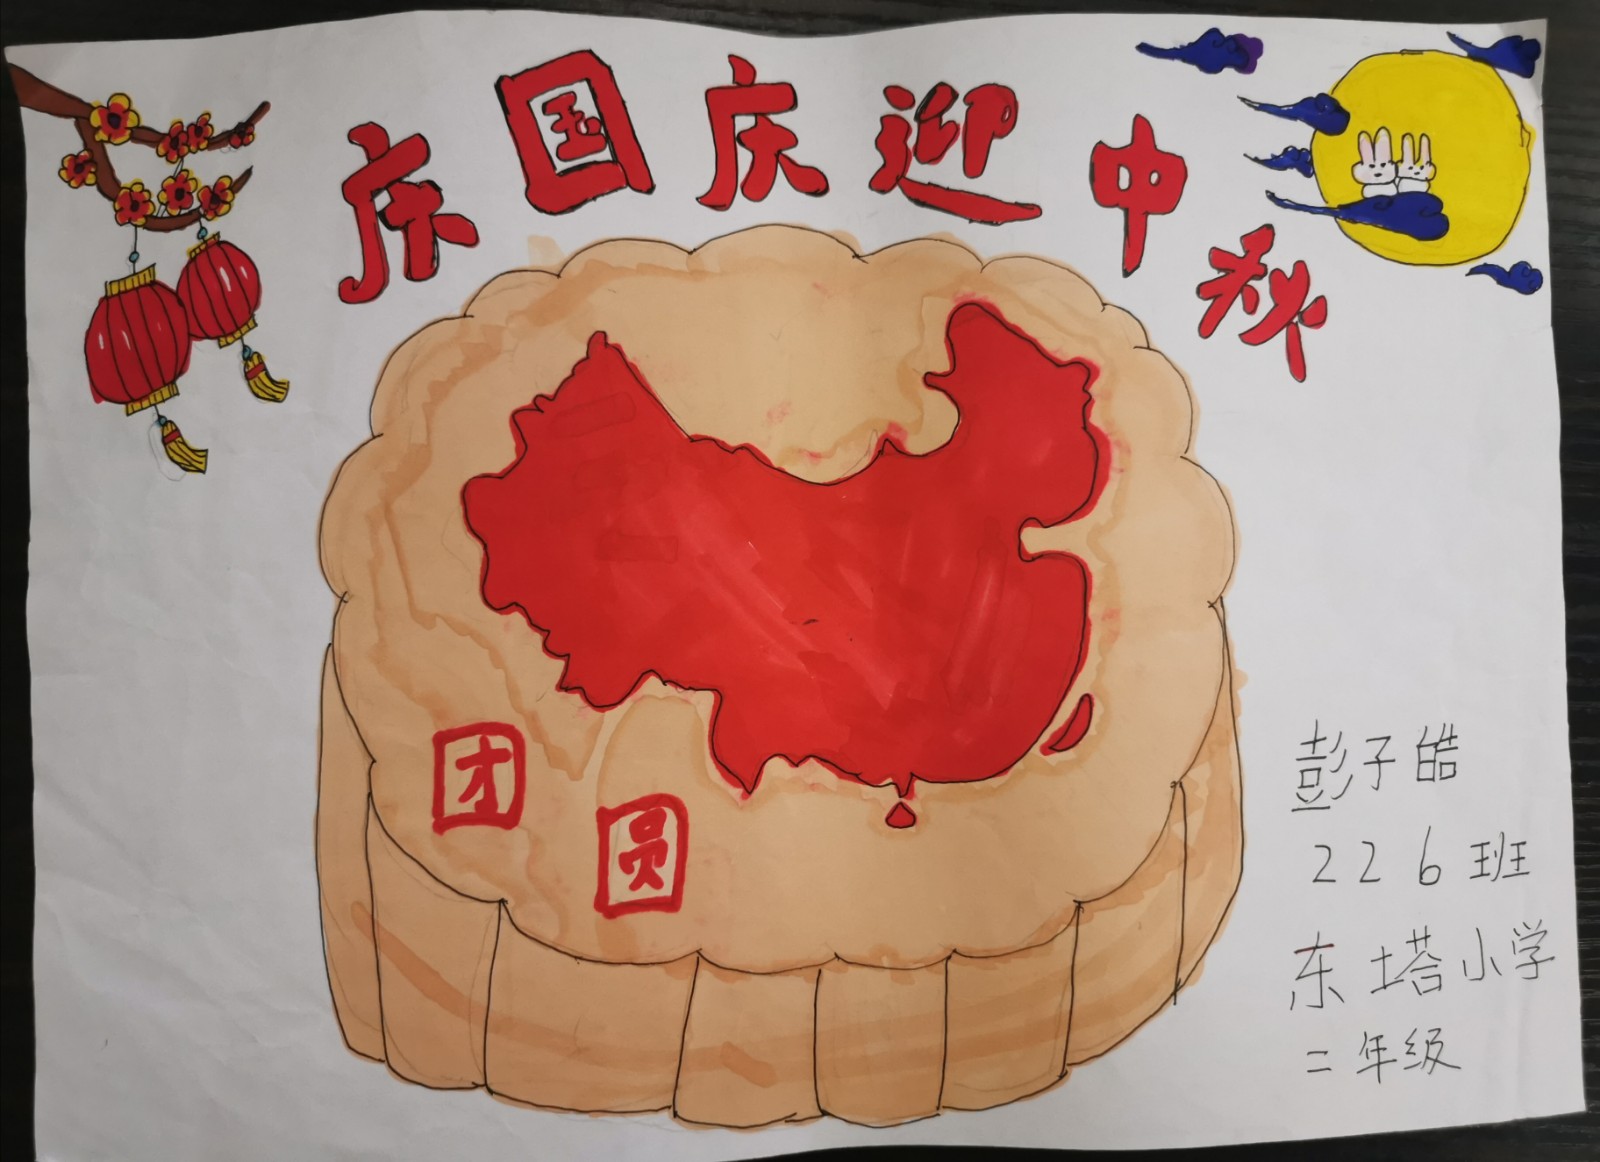 庆国庆迎中秋
团圆
彭子皓
226班
东塔小学
二年级